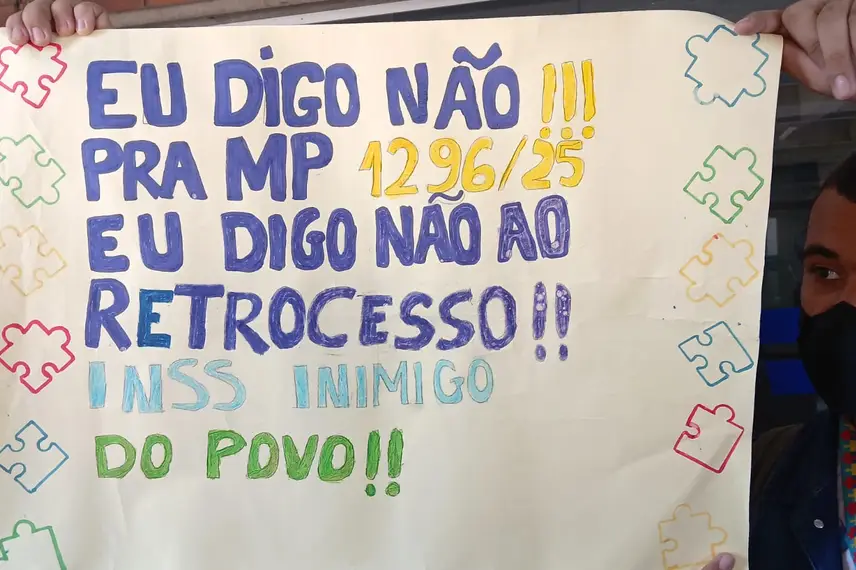 EU DIGO NÃO !!!
PRA MP 1296/25
EU DIGO NÃO AO
RETROCESSO!!
INSS INIMIGO
DO POVO!!